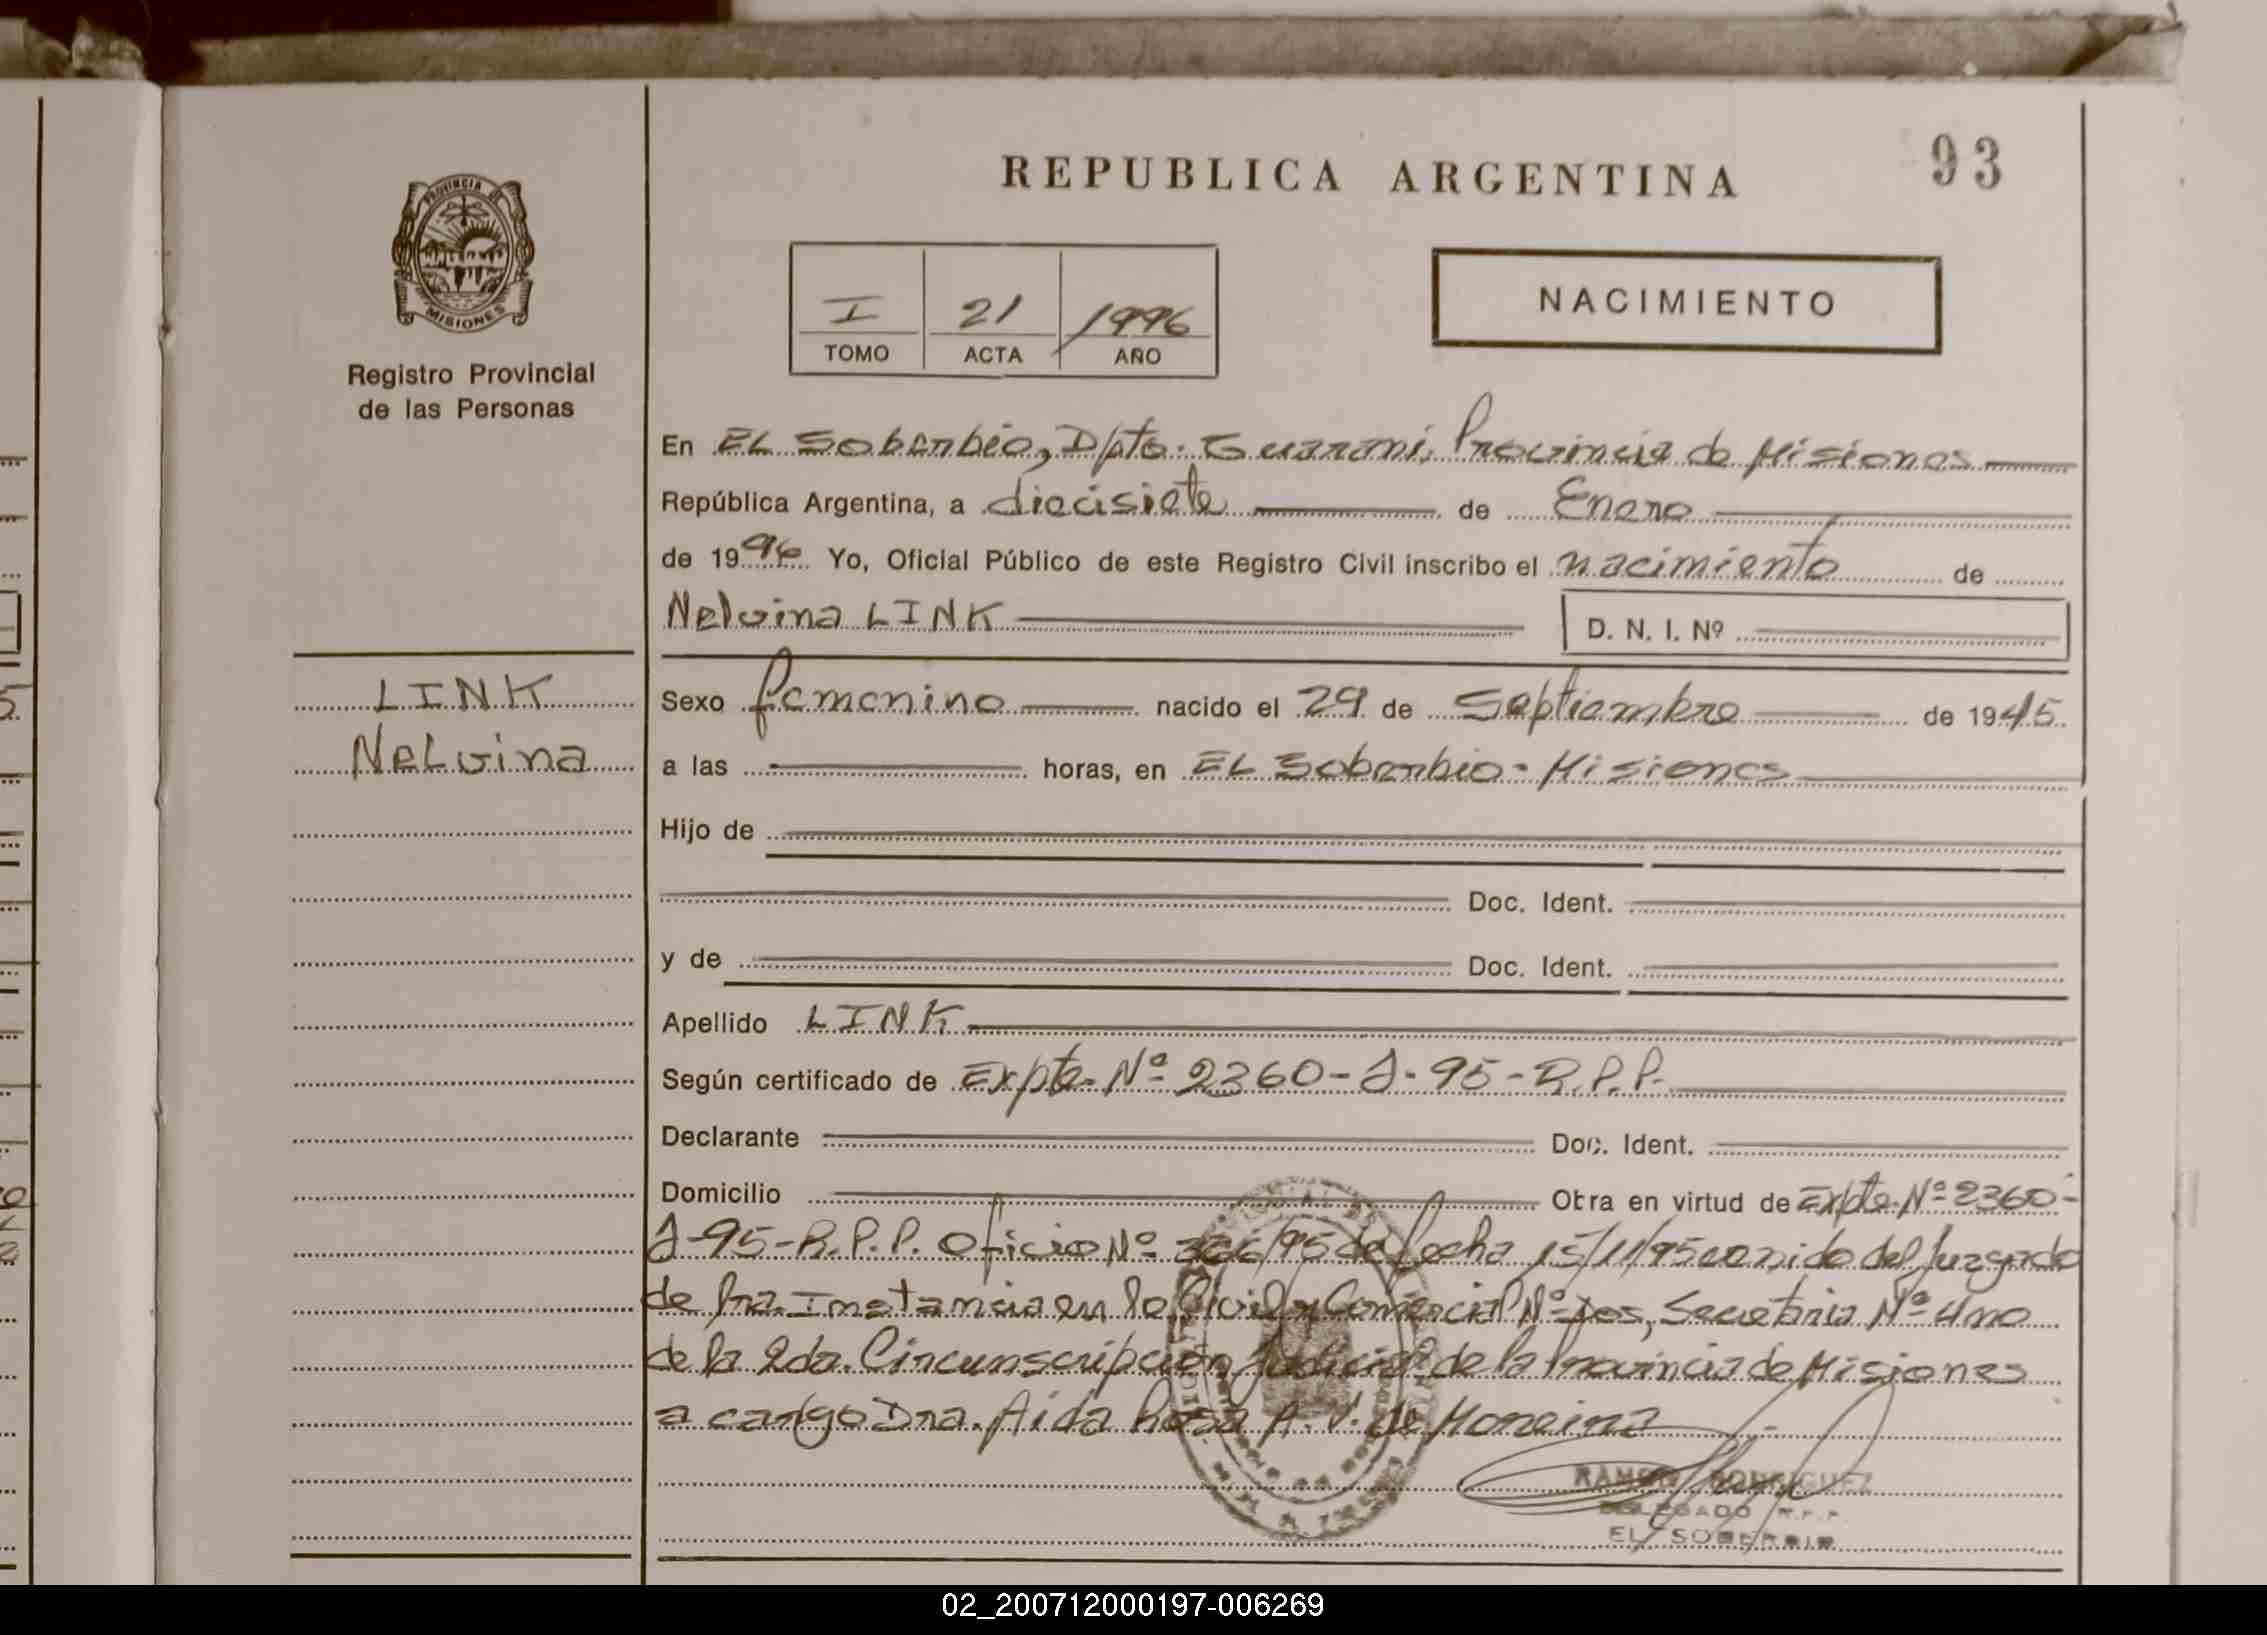 REPUBLICA ARGENTINA
93
PROVINCIA DE
MISIONES
Registro Provincial
de las Personas
I 21 1996
TOMO ACTA AÑO
NACIMIENTO
En EL Soberbio, Dpto. Guarani, Provincia de Misiones
República Argentina, a diecisiete de Enero
de 1996 Yo, Oficial Público de este Registro Civil inscribo el nacimiento de
Nelvina LINK D. N. I. Nº
LINK
Nelvina
Sexo femenino nacido el 29 de Septiembre de 1945
a las horas, en EL Soberbio - Misiones
Hijo de
Doc. Ident.
y de Doc. Ident.
Apellido LINK
Según certificado de Expte. Nº 2360-J-95-R.P.P.
Declarante Doc. Ident.
Domicilio Otra en virtud de Expte. Nº 2360-
J-95-R.P.P. Oficio Nº /95 de fecha 15/11/95 venido del Juzgado
de 1ra. Instancia en lo Civil y Comercial Nº dos, Secretaria Nº uno
de la 2da. Circunscripción Judicial de la Provincia de Misiones
a cargo Dra. Aida Rosa A. V. de Moreira
RAMON RODRIGUEZ
DELEGADO R.P.P.
EL SOBERBIO
02_200712000197-006269